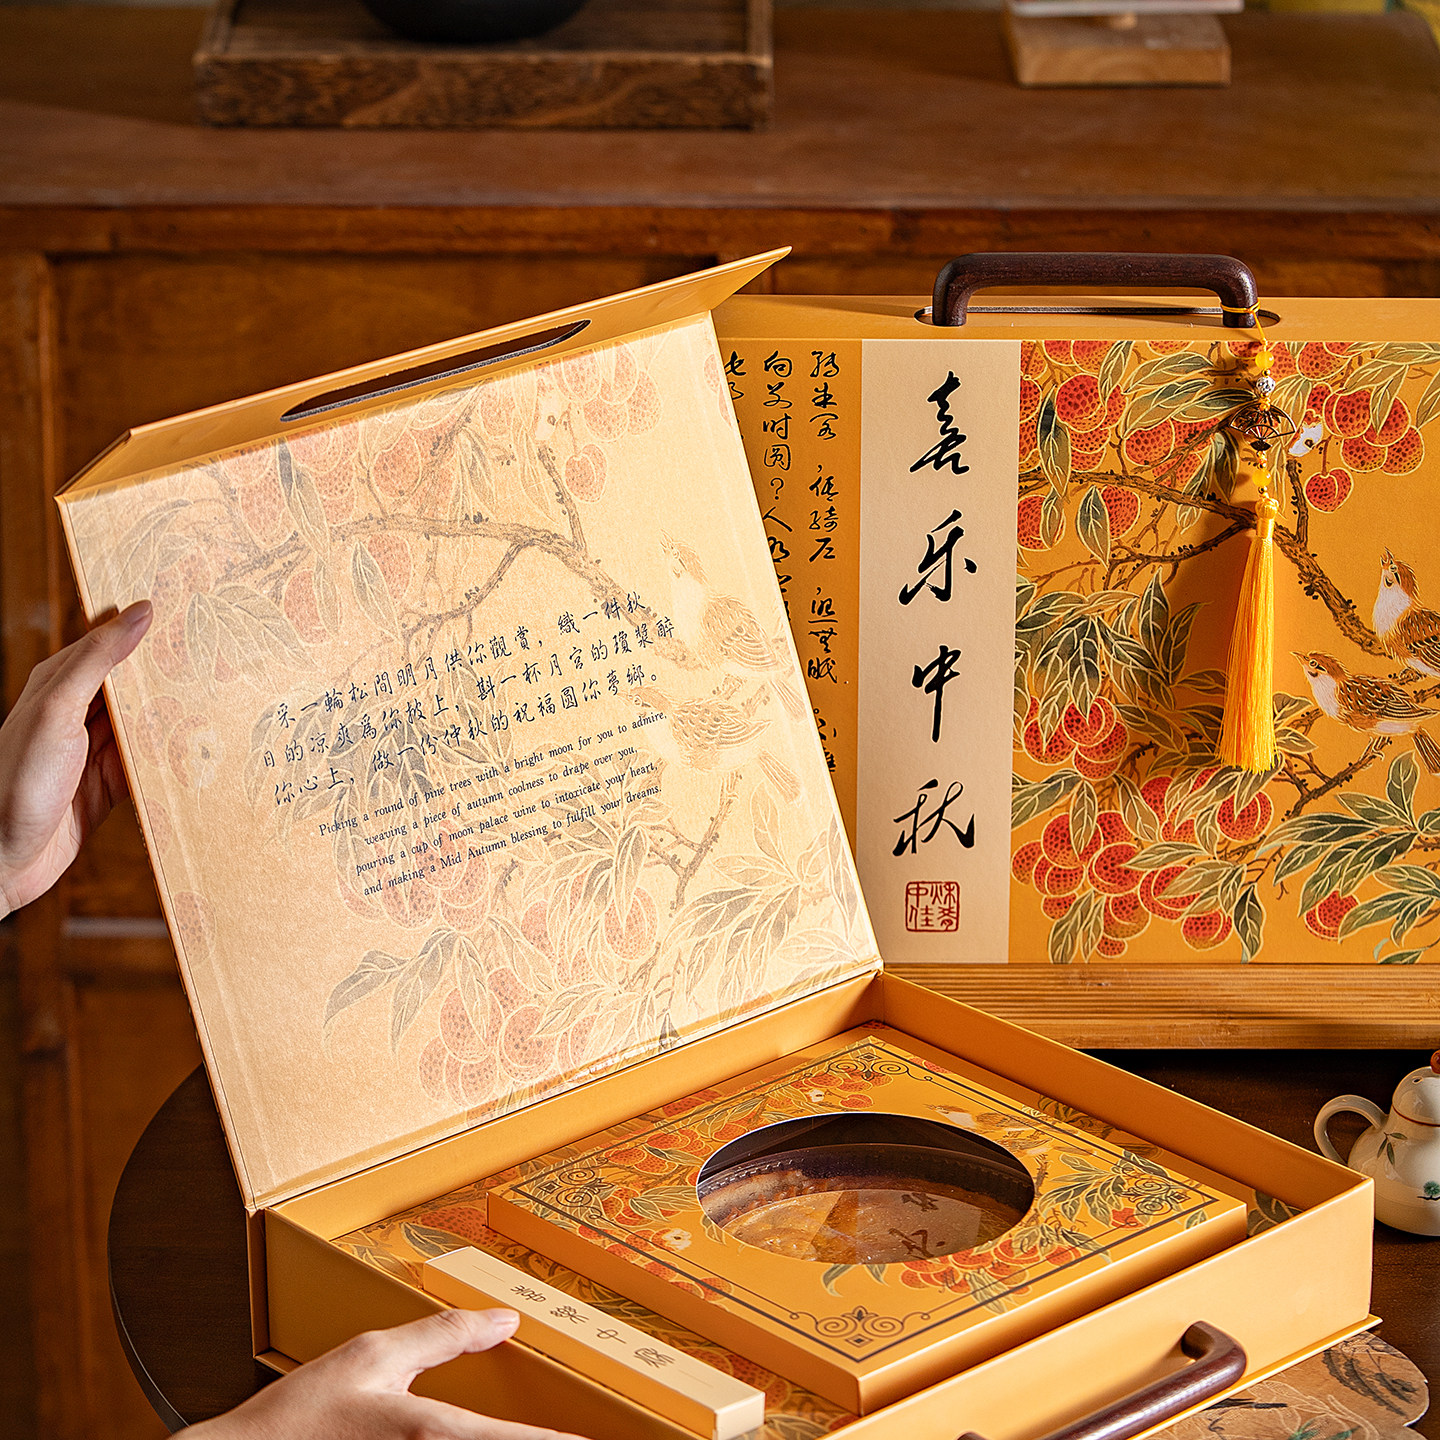 采一輪松間明月供你觀賞，織一件秋
日的涼爽爲你披上，斟一杯月宮的瓊漿醉
你心上，做一份仲秋的祝福圆你夢鄉。
Picking a round of pine trees with a bright moon for you to admire,
weaving a piece of autumn coolness to drape over you,
pouring a cup of moon palace wine to intoxicate your heart,
and making a Mid Autumn blessing to fulfill your dreams.
转朱阁，低绮户，照無眠
向别时圆？人有
喜乐中秋
喜樂中秋